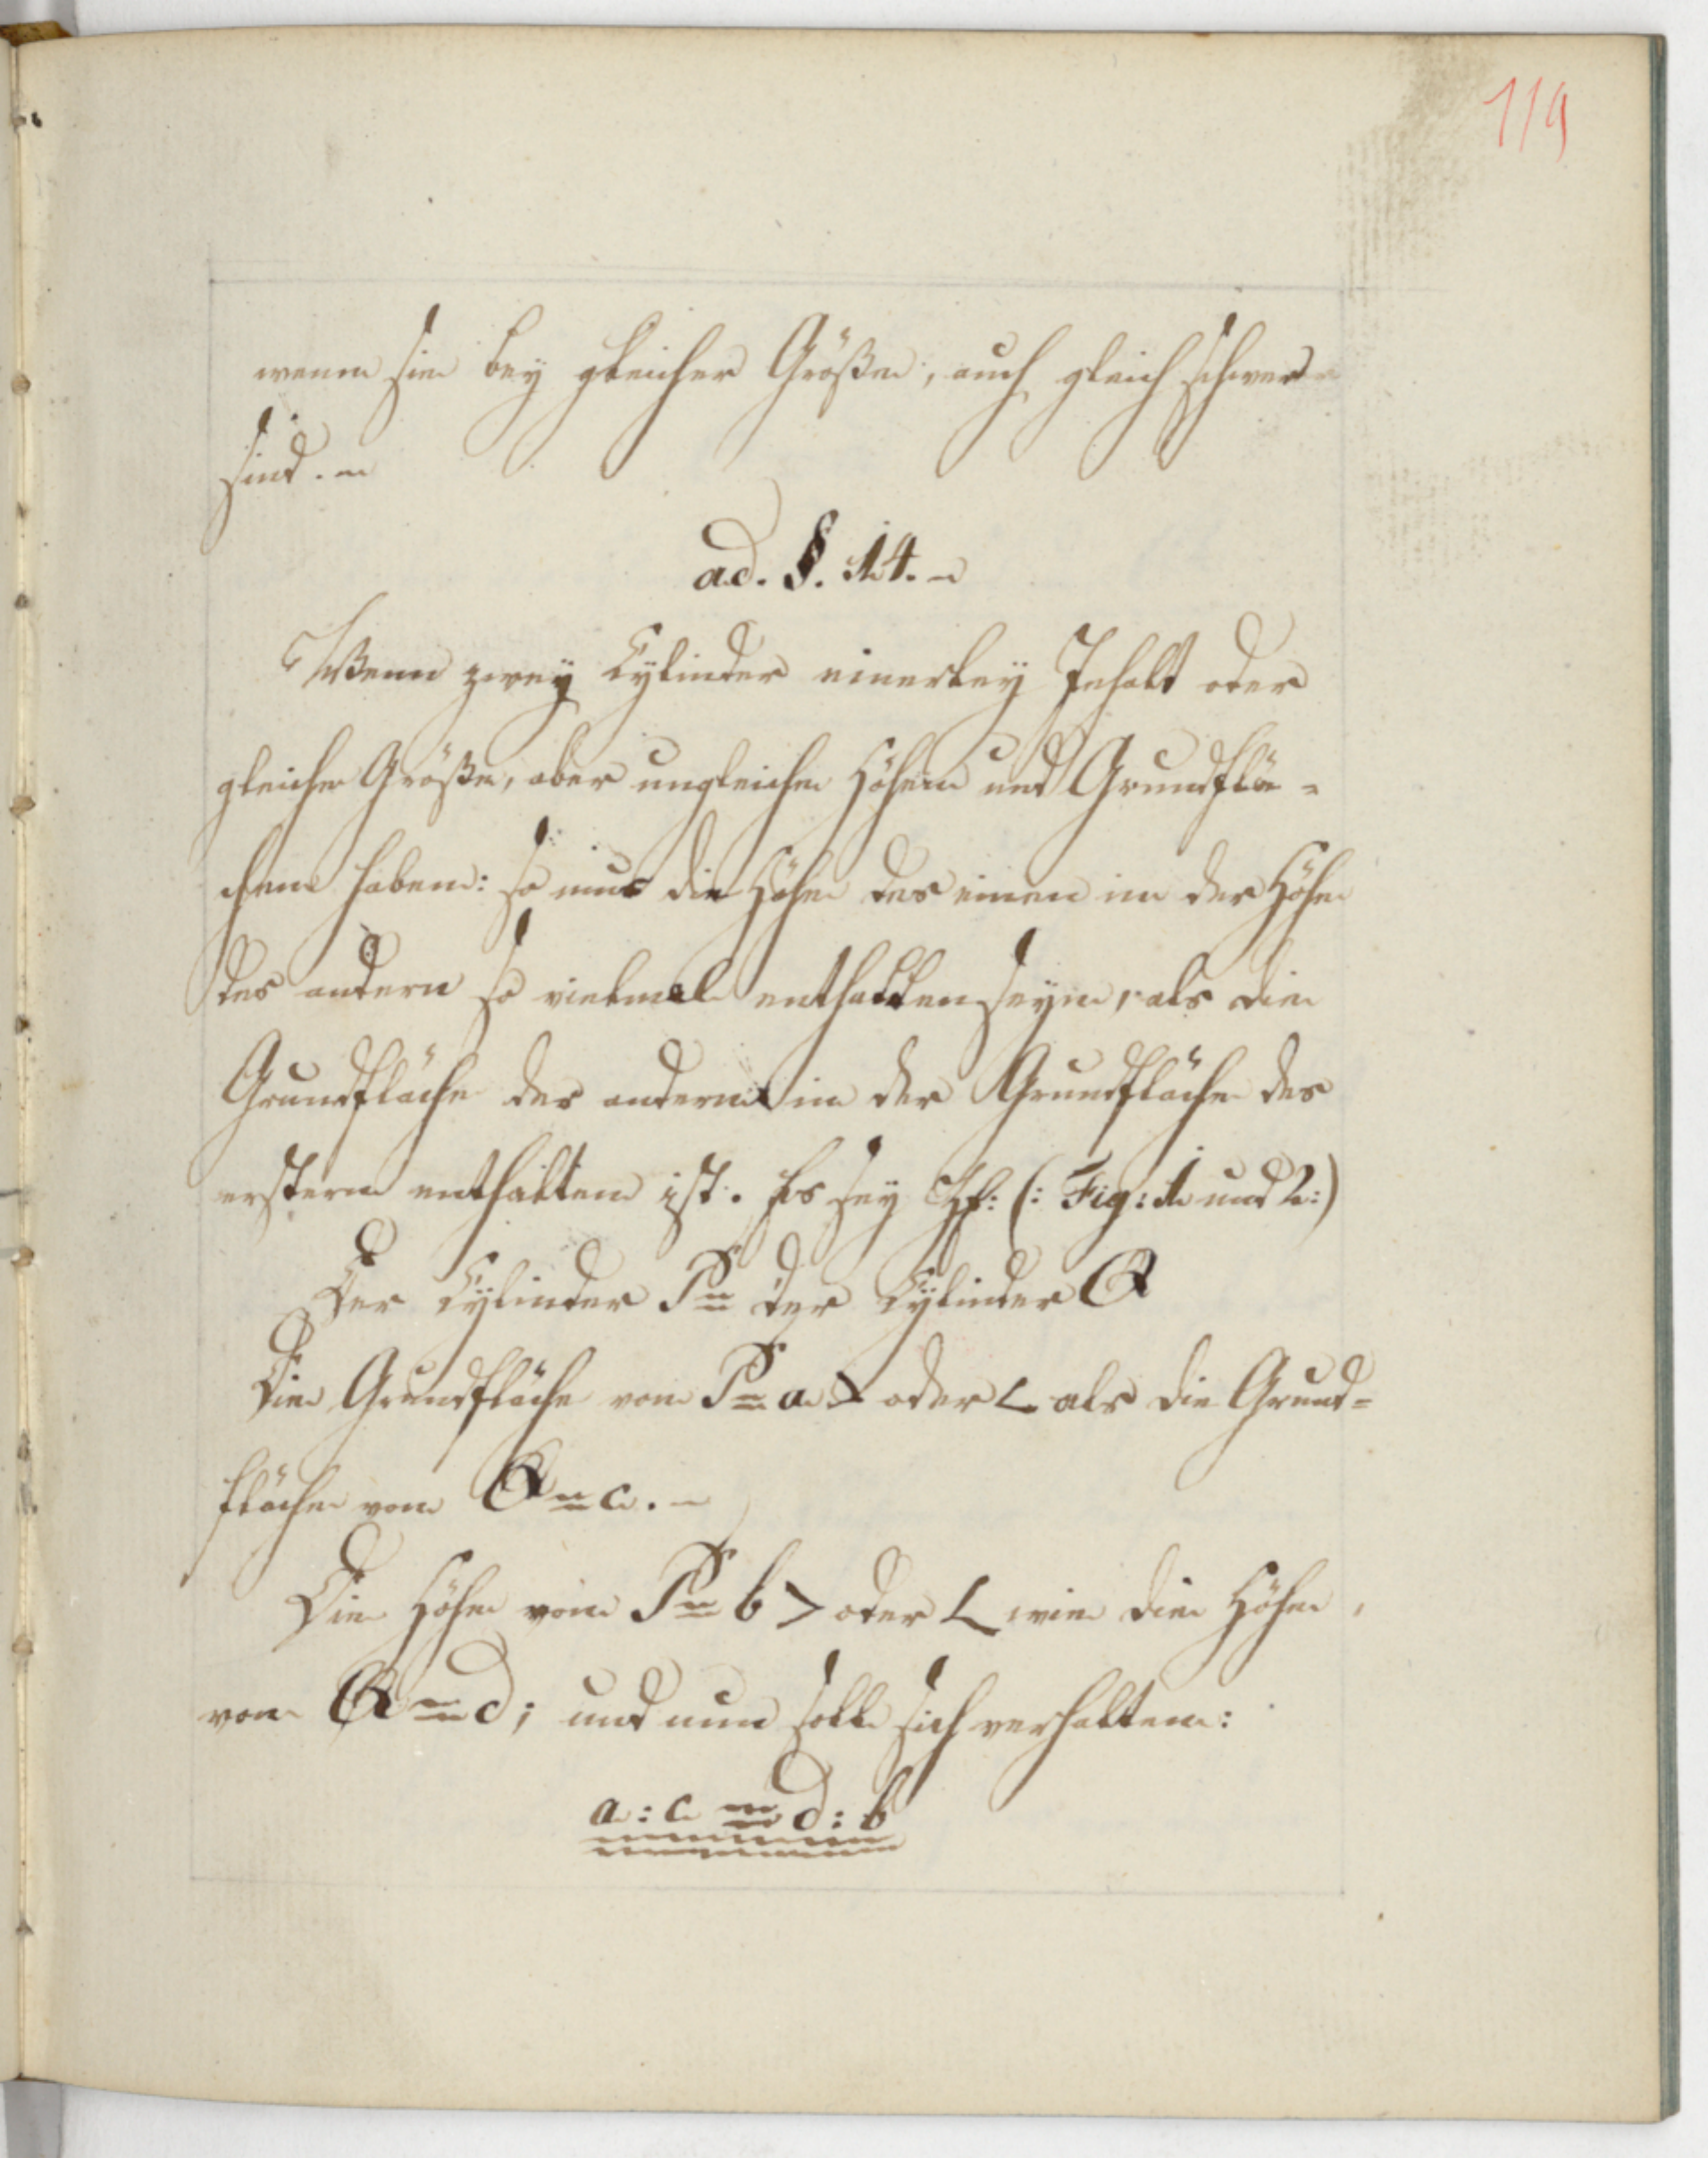 119
wenn sie bey gleicher Größe, auch gleich schwer
sind. -
ad. §. 14. -
Wenn zwey Cylinder einerley Inhalt oder
gleiche Größe, aber ungleiche Höhen und Grundflä-
chen haben: so mus die Höhe des einen in der Höhe
des andern so vielmal enthalten seyn, als die
Grundfläche des andern in der Grundfläche des
erstern enthalten ist. Es sey (: Fig: 1 und 2:)
Der Cylinder P = der Cylinder Q
Die Grundfläche von P = a > oder < als die Grund-
fläche von Q = c. -
Die Höhe von P = b > oder < wie die Höhe
von Q = d; und nun soll sich verhalten:
a : c = d : b